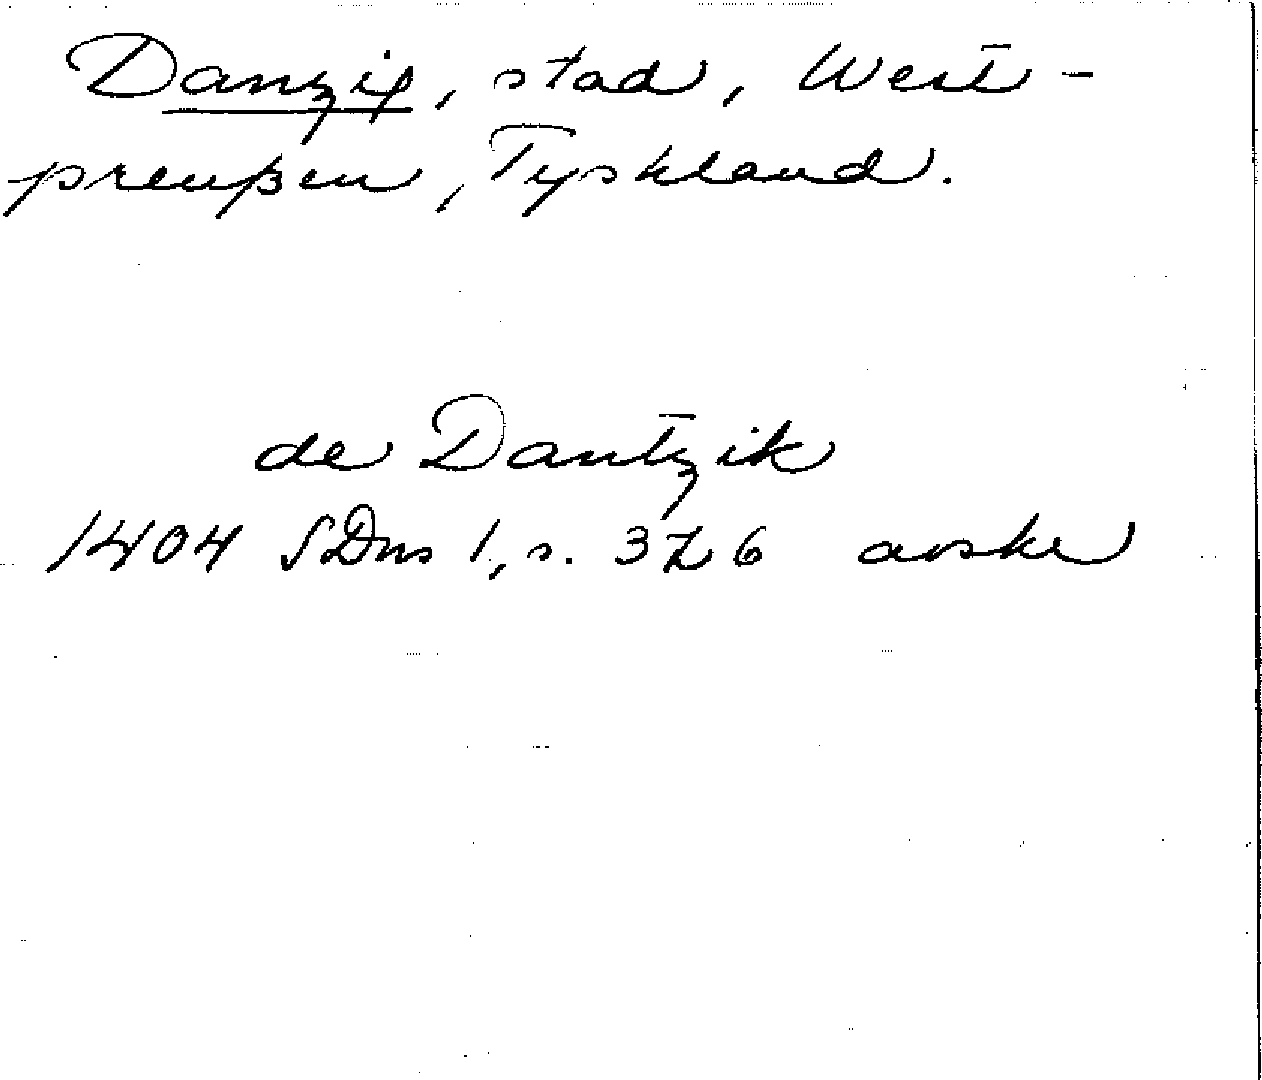 Danzig, stad, West-
preußen, Tyskland.
de Dantzik
1404 SDns 1, s. 326 avskr